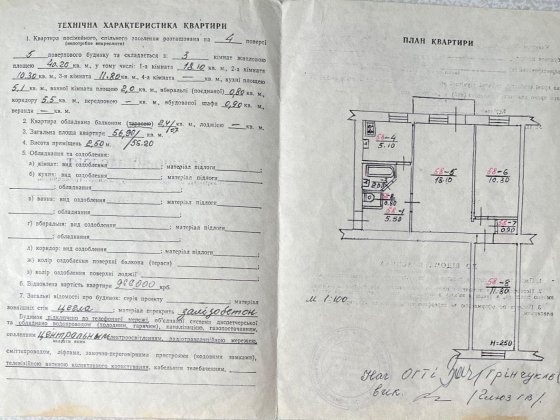 ТЕХНІЧНА ХАРАКТЕРИСТИКА КВАРТИРИ
1. Квартира посімейного, спільного заселення розташована на 4 поверсі
(непотрібне викреслити)
5 поверхового будинку та складається із 3 кімнат жилловою
площею 40.20 кв. м, у тому числі: 1-а кімната 18.10 кв. м, 2-а кімната
10.30 кв. м, 3-я кімната 11.80 кв. м, 4-а кімната — кв. м, кухні площею
5,1 кв. м, ванної кімнати площею 2,0 кв. м, вбиральні (поєднаної) 0.80 кв. м,
коридору 5.5 кв. м, передпокою — кв. м, вбудованої шафи 0,90 кв. м,
веранда — кв. м.
2. Квартира обладнана балконом (терасою) кв. м, лоджією — кв. м.
3. Загальна площа квартири 56,90 кв. м.
4. Висота приміщень 2,50 м. /56.20
5. Обладнання та оздоблення:
а) кімнат: вид оздоблення ; матеріал підлоги ;
б) кухня: вид оздоблення ; матеріал підлоги
; обладнання
в) ванна: вид оздоблення ; матеріал підлоги
; обладнання
г) вбиральня: вид оздоблення ; матеріал підлоги
; обладнання
д) коридор: вид оздоблення ; матеріал підлоги
ж) колір оздоблення поверхні балкона (тераси)
з) колір оздоблення поверхні лоджії
6. Відновлена вартість квартири крб.
7. Загальні відомості про будинок: серія проекту матеріал
зовнішніх стін цегла матеріал перекрить залізобетон
Будинок підключено до телефонної мережі, об'єднаної системи диспетчерської
та обладнано водопроводом (холодним, гарячим), каналізацією, газопостачанням,
опаленням центральним електроосвітленням, радіотрансляційною мережею,
сміттєпроводом, ліфтами, замочно-переговорними пристроями (кодовими замками),
телевізійною антеною колективного користування, кабельним телебаченням,
ПЛАН КВАРТИРИ
58-4
5.10
58-5
18.10
58-6
10.30
0.80
58-1
5.50
58-7
0.90
58-8
11.80
М 1:100
Н-250
Нач ОГТІ Грінчуклв
вик.